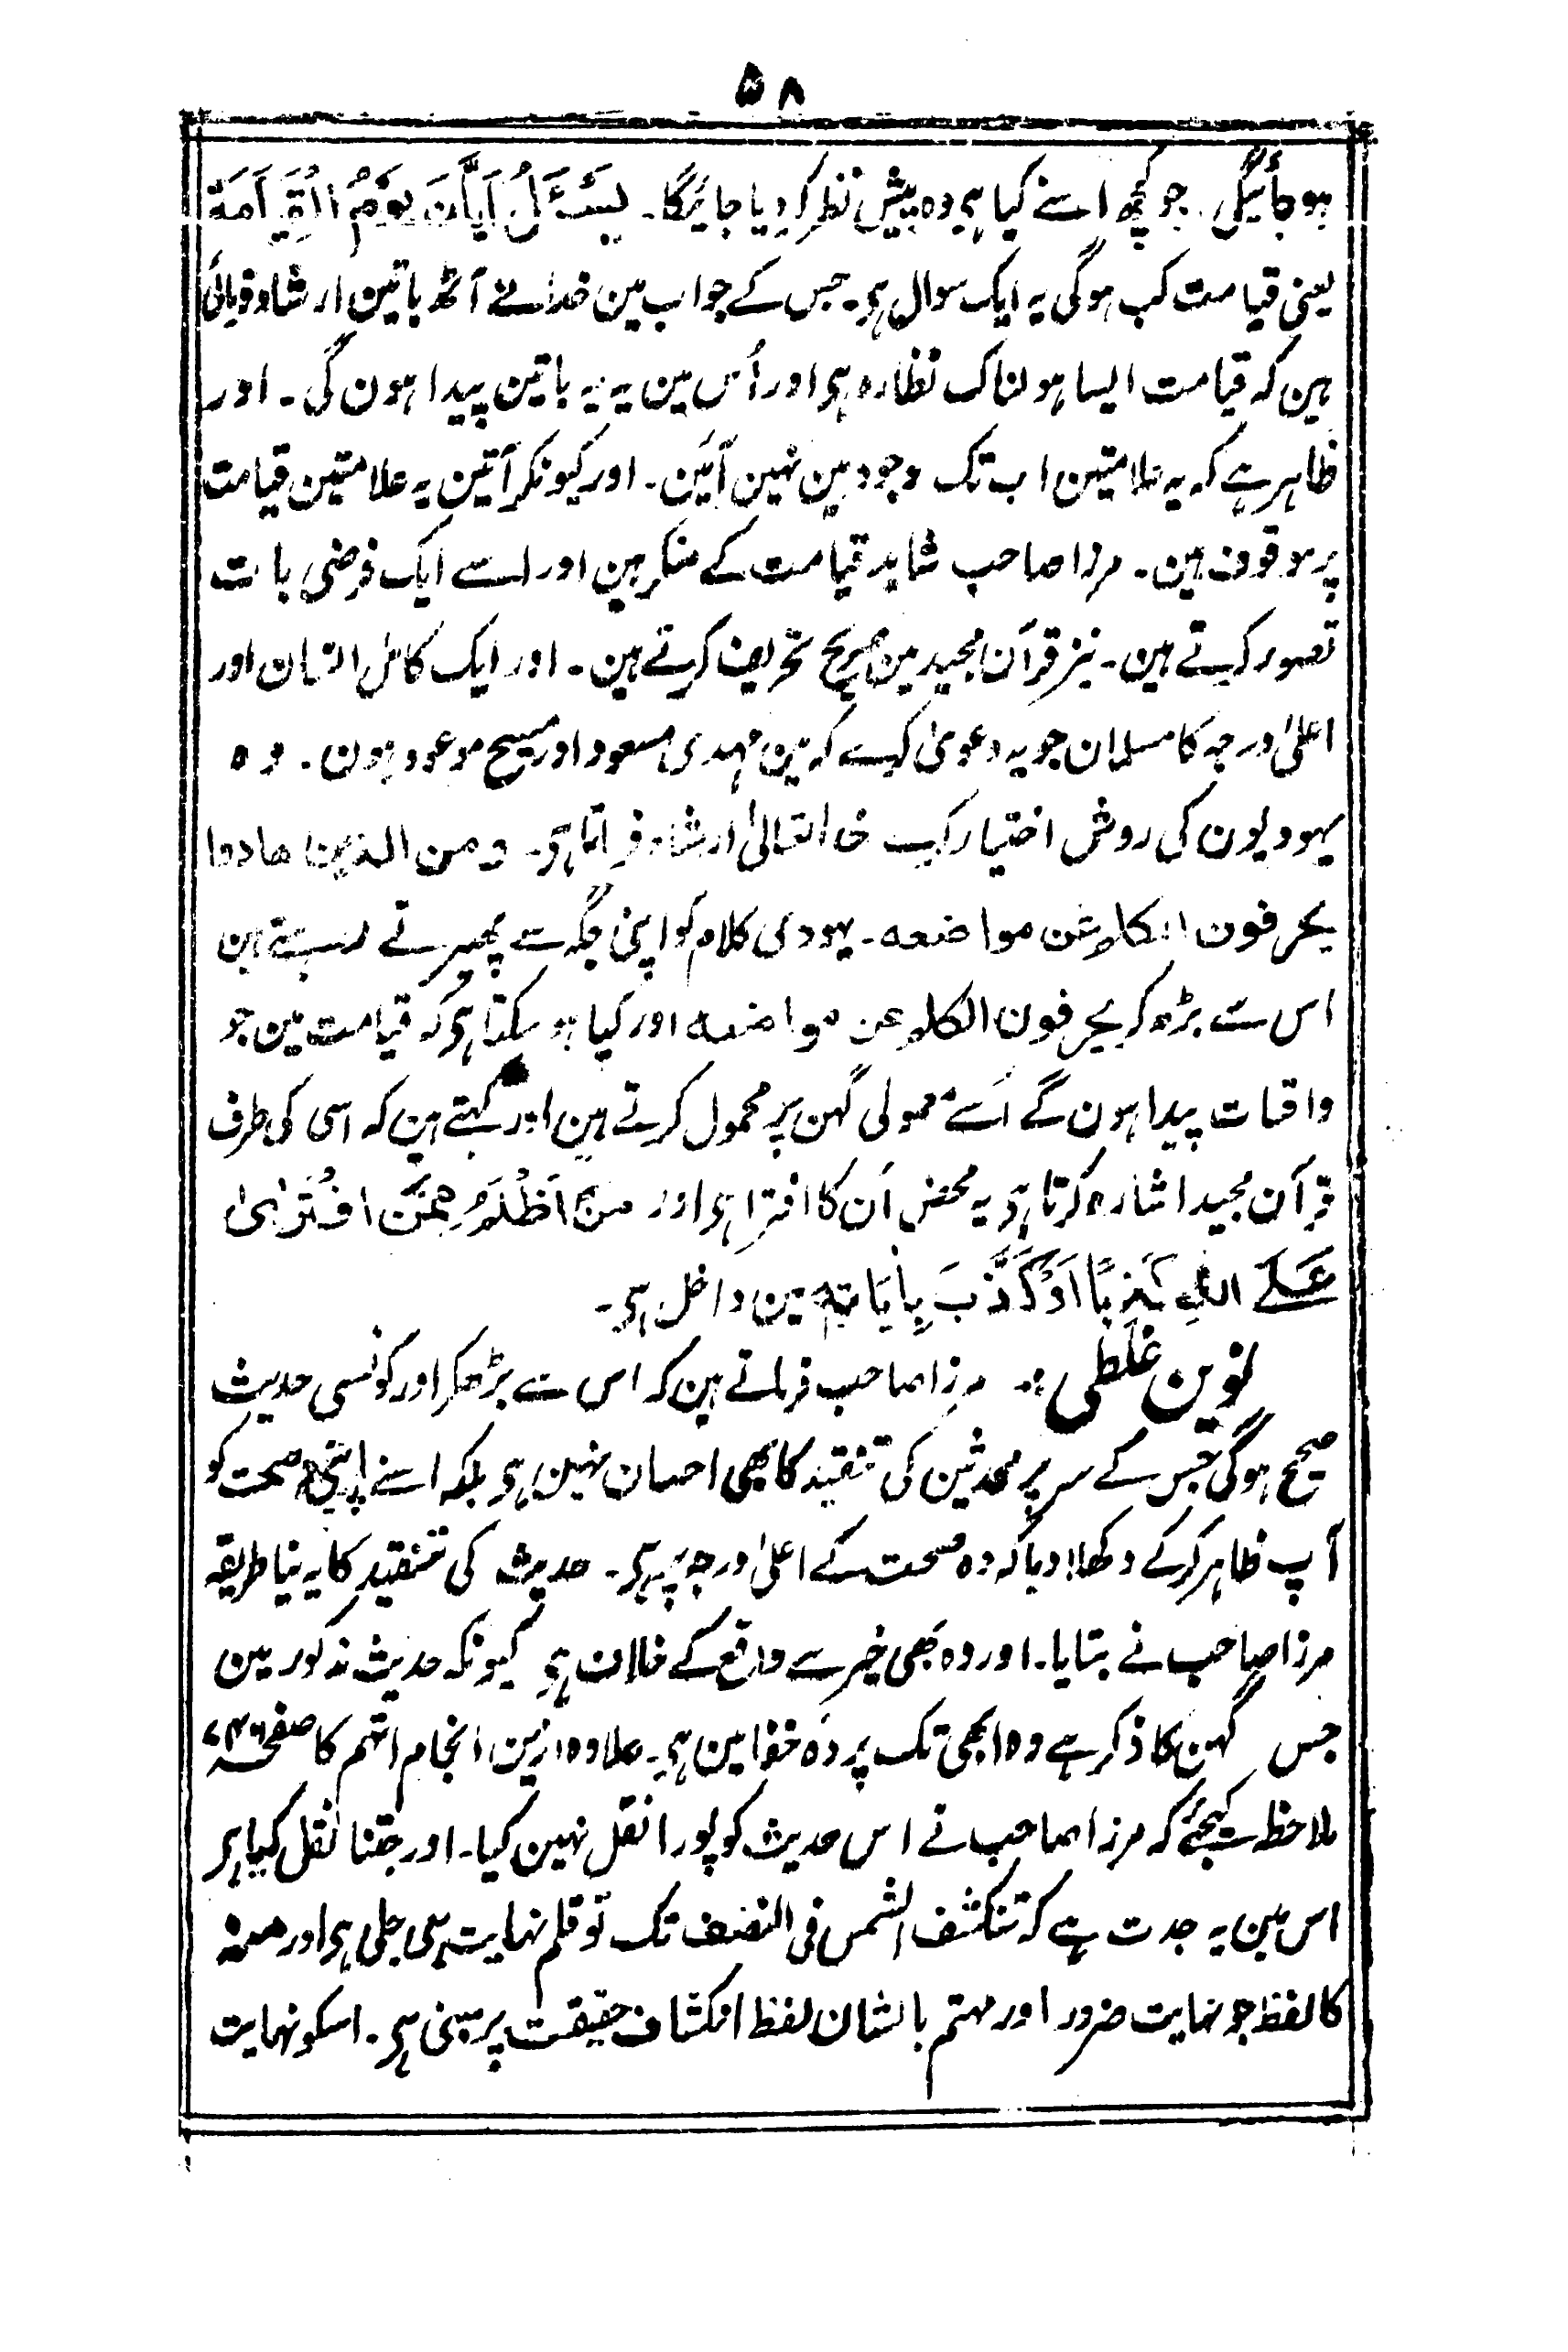 ۵۸
ہوجائیگی۔ جو کچھ اسنے کیا ہی وہ پیش نظر کر دیا جائیگا۔ یَسْـَٔلُ اَیَّانَ یَوْمُ الْقِیَامَةِ
یعنی قیامت کب ہوگی یہ ایک سوال ہی۔ جس کے جواب مین خدا نے آٹھ باتین ارشاد فرمائی
ہین کہ قیامت ایسا ہولناک نظارہ ہی اور اُس مین یہ یہ باتین پیدا ہون گی۔ اور
ظاہر ہے کہ یہ علامتین اب تک وجود مین نہین آئین۔ اور کیونکر آتین یہ علامتین قیامت
پر موقوف ہین۔ مرزا صاحب شاید قیامت کے منکر ہین اور اسے ایک فرضی بات
تصور کرتے ہین۔ نیز قرآن مجید مین صریح تحریف کرتے ہین۔ اور ایک کامل انسان اور
اعلیٰ درجہ کا مسلمان جو یہ دعویٰ کرے کہ مین مہدی مسعود اور مسیح موعود ہون۔ وہ
یہودیون کی روش اختیار کرے خدا تعالیٰ ارشاد فرماتا ہی۔ ومن الذین ھادوا
یحرفون الکلم عن مواضعه۔ یہودی کلام کو اپنی جگہ سے پھیرتے رہتے ہین
اس سے بڑھ کر یحرفون الکلم عن مواضعه اور کیا ہو سکتا ہی کہ قیامت مین جو
واقعات پیدا ہون گے اُسے معمولی گہن پر محمول کرتے ہین اور کہتے ہین کہ اسی کی طرف
قرآن مجید اشارہ کرتا ہی یہ محض اُن کا افترا ہی اور مَنْ اَظْلَمُ مِمَّنِ افْتَرٰیٰ
عَلَے اللهِ کَذِبًا اَوْ کَذَّبَ بِاٰیَاتِهٖ مین داخل ہی۔
نوین غلطی :۔ مرزا صاحب فرماتے ہین کہ اس سے بڑھکر اور کونسی حدیث
صحیح ہوگی جس کے سر پر محدثین کی تنقید کا بھی احسان نہین ہی بلکہ اسنے اپنی صحت کو
آپ ظاہر کرکے دکھلا دیا کہ وہ صحت کے اعلیٰ درجہ پر ہی۔ حدیث کی تنقید کا یہ نیا طریقہ
مرزا صاحب نے بتایا۔ اور وہ بھی خیر سے واقع کے خلاف ہی کیونکہ حدیث مذکور مین
جس گہن کا ذکر ہے وہ ابھی تک پردۂ خفا مین ہی۔ علاوہ ازین انجام اتھم کا صفحہ
ملاحظہ کیجئے کہ مرزا صاحب نے اس حدیث کو پورا نقل نہین کیا۔ اور جتنا نقل کیا ہی
اس مین یہ جدت ہے کہ تنکشف الشمس فی النصف تک تو قلم نہایت ہی جلی ہی اور منہ
کا لفظ جو نہایت ضرور اور مہتم بالشان لفظ انکشاف حقیقت پر مبنی ہی۔ اسکو نہایت